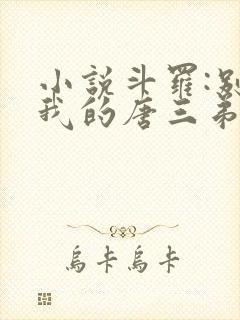 小說斗羅:別
我的唐三弟
烏卡烏卡